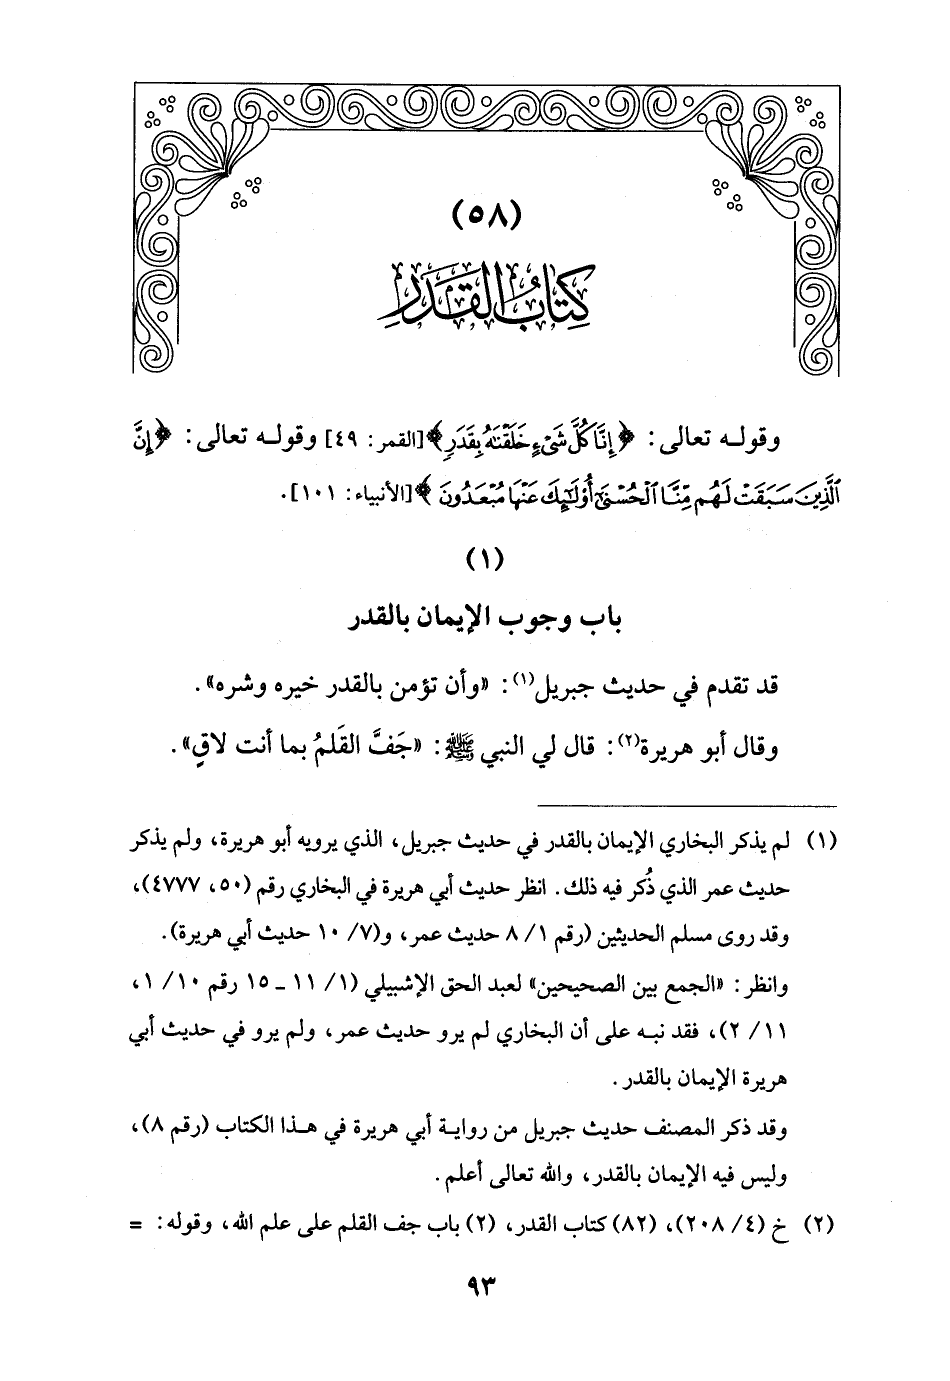 (٥٨)
كِتَابُ القَدَرِ
وقوله تعالى: ﴿إِنَّا كُلَّ شَيْءٍ خَلَقْنَٰهُ بِقَدَرٍ﴾ [القمر: ٤٩] وقوله تعالى: ﴿إِنَّ
ٱلَّذِينَ سَبَقَتْ لَهُم مِّنَّا ٱلْحُسْنَىٰٓ أُوْلَٰٓئِكَ عَنْهَا مُبْعَدُونَ﴾ [الأنبياء: ١٠١].
(١)
باب وجوب الإيمان بالقدر
قد تقدم في حديث جبريل(١): «وأن تؤمن بالقدر خيره وشره».
وقال أبو هريرة(٢): قال لي النبي ﷺ: «جَفَّ القَلمُ بما أنت لاقٍ».
(١) لم يذكر البخاري الإيمان بالقدر في حديث جبريل، الذي يرويه أبو هريرة، ولم يذكر
حديث عمر الذي ذُكر فيه ذلك. انظر حديث أبي هريرة في البخاري رقم (٥٠، ٤٧٧٧)،
وقد روى مسلم الحديثين (رقم ١/ ٨ حديث عمر، و(٧/ ١٠ حديث أبي هريرة).
وانظر: «الجمع بين الصحيحين» لعبد الحق الإشبيلي (١/ ١١ ـ ١٥ رقم ١٠/ ١،
١١/ ٢)، فقد نبه على أن البخاري لم يرو حديث عمر، ولم يرو في حديث أبي
هريرة الإيمان بالقدر.
وقد ذكر المصنف حديث جبريل من رواية أبي هريرة في هذا الكتاب (رقم ٨)،
وليس فيه الإيمان بالقدر، والله تعالى أعلم.
(٢) خ (٤/ ٢٠٨)، (٨٢) كتاب القدر، (٢) باب جف القلم على علم الله، وقوله: =
٩٣